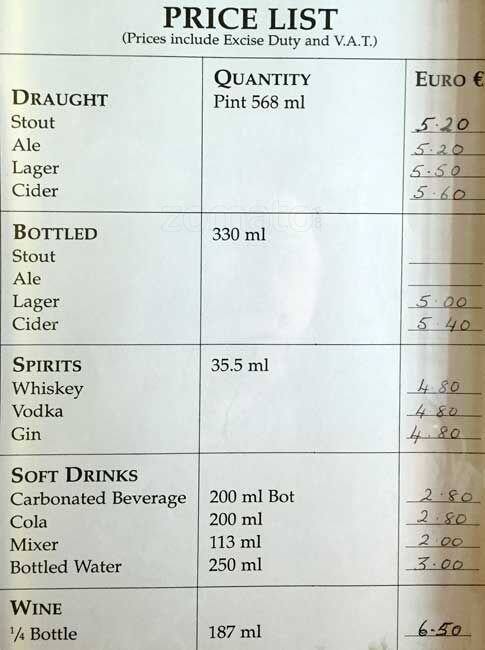 PRICE LIST
(Prices include Excise Duty and V.A.T.)
QUANTITY EURO €
DRAUGHT Pint 568 ml
Stout 5.20
Ale 5.20
Lager 5.50
Cider 5.60
zomato
BOTTLED 330 ml
Stout
Ale
Lager 5.00
Cider 5.40
SPIRITS 35.5 ml
Whiskey 4.80
Vodka 4.80
Gin 4.80
SOFT DRINKS
Carbonated Beverage 200 ml Bot 2.80
Cola 200 ml 2.80
Mixer 113 ml 2.00
Bottled Water 250 ml 3.00
WINE
¼ Bottle 187 ml 6.50